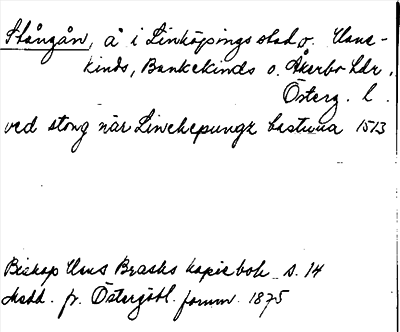 Stångån, å i Linköpings stad o. Hane-
kinds, Bankekinds o. Åkerbo hdr,
Österg. l.
ved stong når Linchepungx bastuua 1513
Biskop Hans Brasks kopiebok s. 14
Medd. fr. Östergötl. fornm. 1875